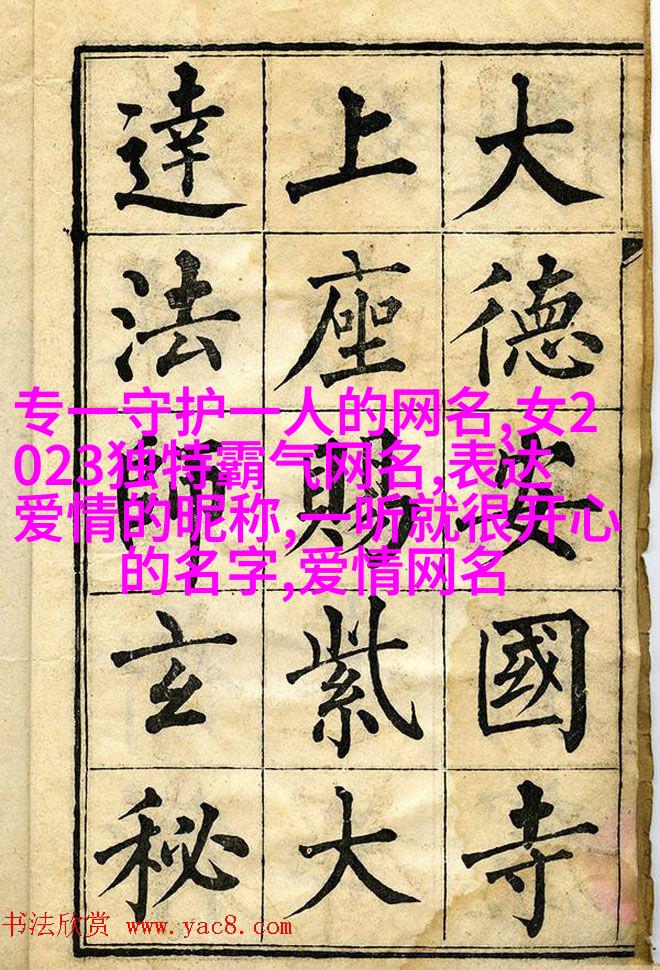 大德安國寺
上座賜紫大
達法師玄秘
专一守护一人的网名,女2
023独特霸气网名,表达
爱情的昵称,一听就很开心
的名字,爱情网名
书法欣赏 www.yac8.com